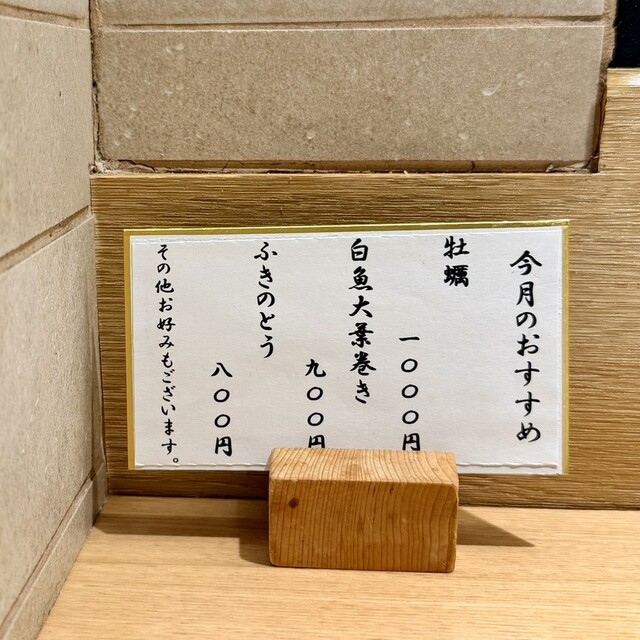 今月のおすすめ
牡蠣
一〇〇〇円
白魚大葉巻き
九〇〇円
ふきのとう
八〇〇円
その他お好みもございます。